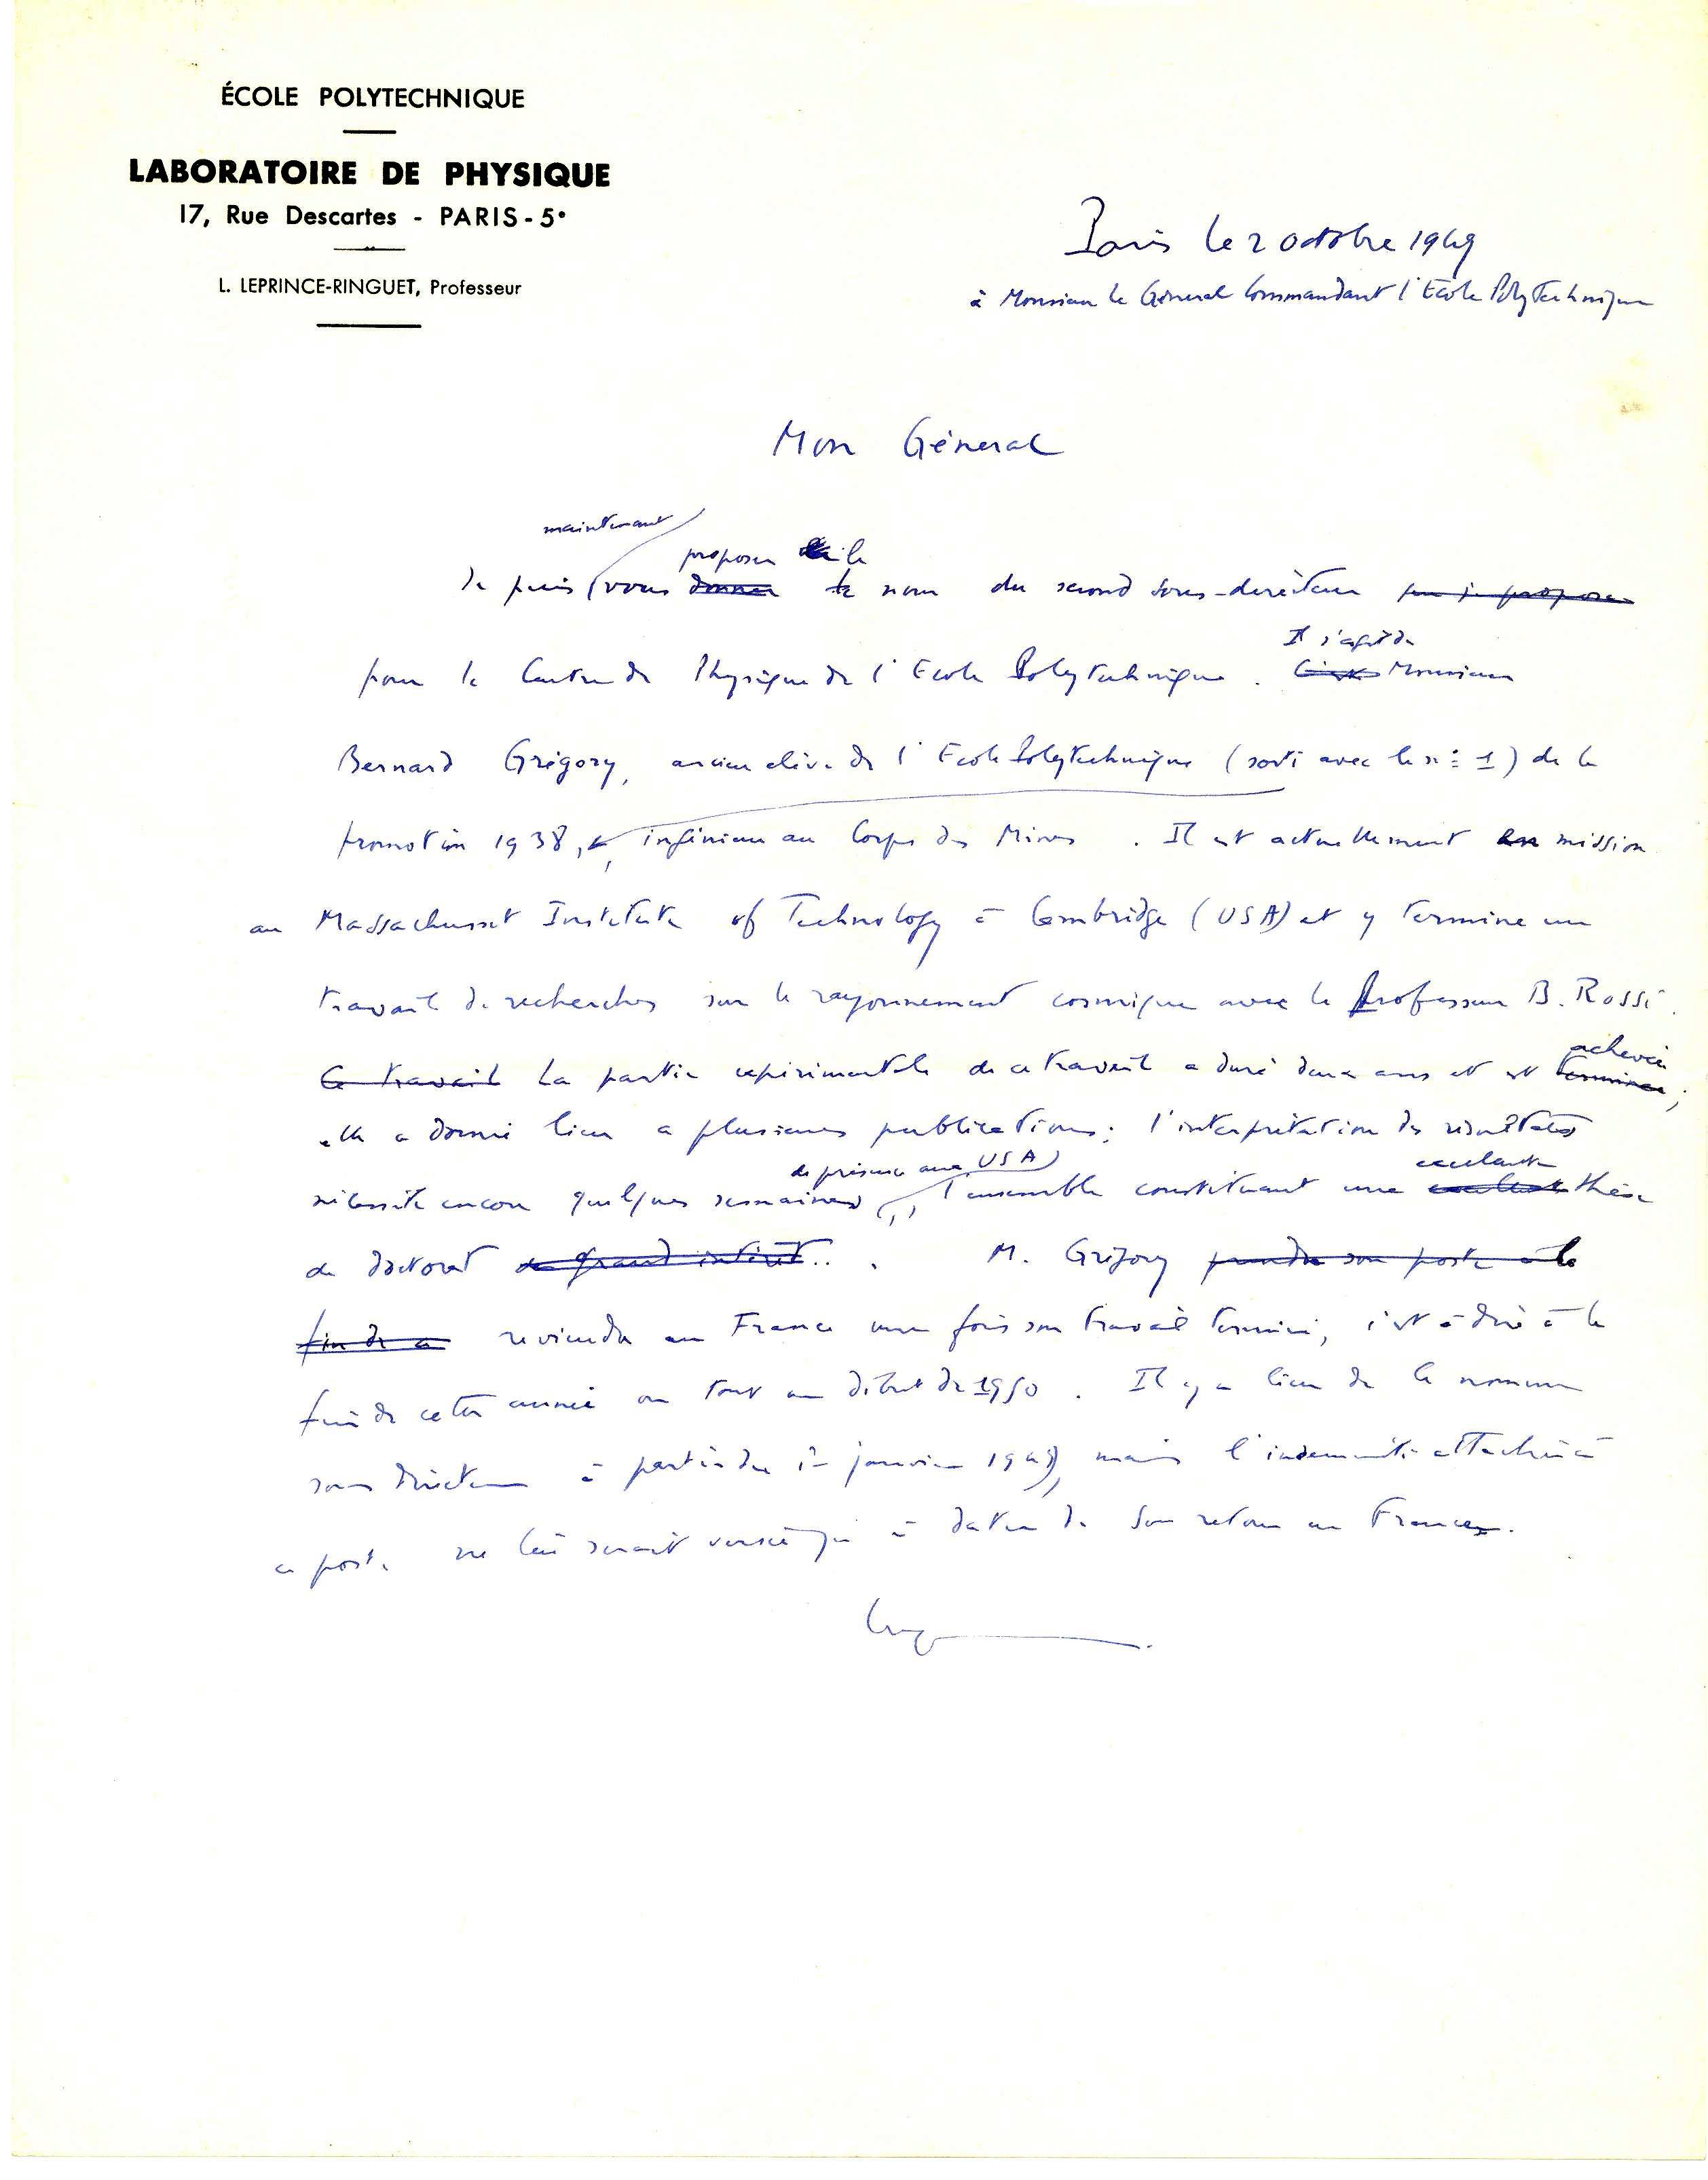 ÉCOLE POLYTECHNIQUE
LABORATOIRE DE PHYSIQUE
17, Rue Descartes - PARIS-5e
L. LEPRINCE-RINGUET, Professeur
Paris le 2 octobre 1949
à Monsieur le Général Commandant l'Ecole Polytechnique
Mon Général
maintenant
proposer le
Je puis vous donner le nom du second sous-directeur que je propose
Il s'agit de
pour le Centre de Physique de l'Ecole Polytechnique. C'est Monsieur
Bernard Grégory, ancien élève de l'Ecole Polytechnique (sorti avec le n: 1) de la
promotion 1938, ingénieur au Corps des Mines. Il est actuellement en mission
au Massachusset Institute of Technology à Cambridge (USA) et y termine un
travail de recherches sur le rayonnement cosmique avec le Professeur B. Rossi.
achevée
Ce travail La partie expérimentale de ce travail a duré deux ans et est terminée;
elle a donné lieu a plusieurs publications; l'interprétation des résultats
de présence aux USA
excellente
nécessite encore quelques semaines, l'ensemble constituant une excellente thèse
de doctorat de grand intérêt... M. Grégory prendra son poste à la
fin de a reviendra en France une fois son travail terminé, c'est à dire à la
fin de cette année ou tout au début de 1950. Il y a lieu de le nommer
sous directeur à partir du 1er janvier 1949, mais l'indemnité attachée à
ce poste ne lui serait versée qu'à dater de son retour en France.